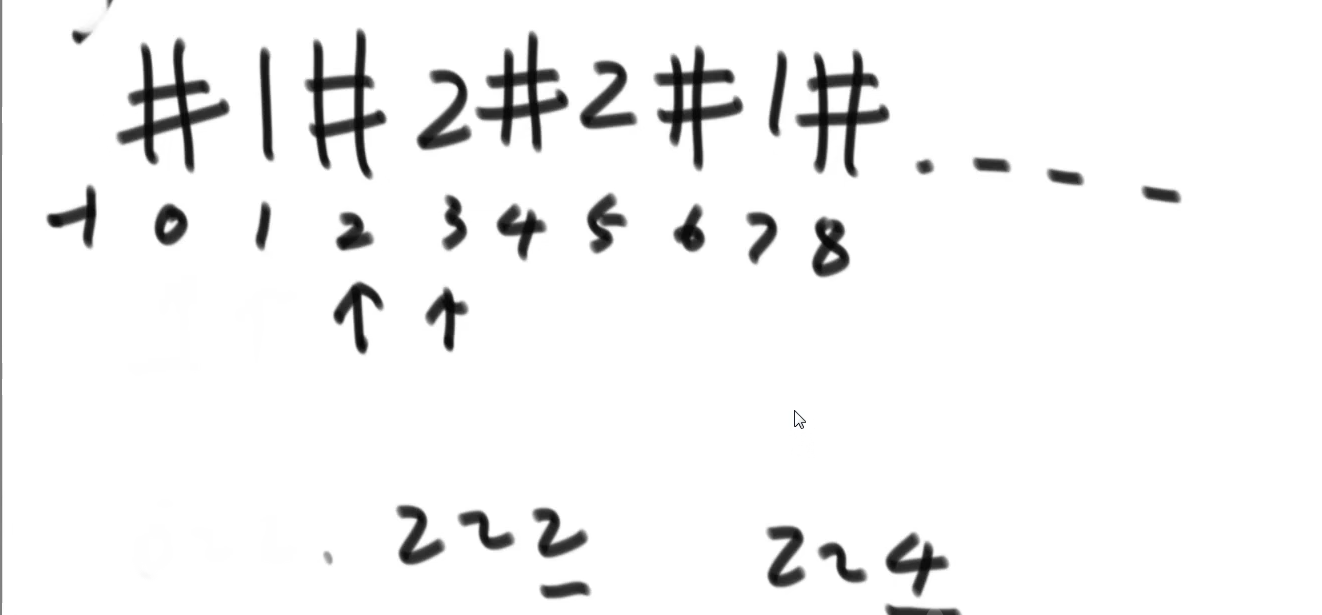 #1#2#2#1#.---
-1 0 1 2 3 4 5 6 7 8
↑ ↑
2~2 2~4